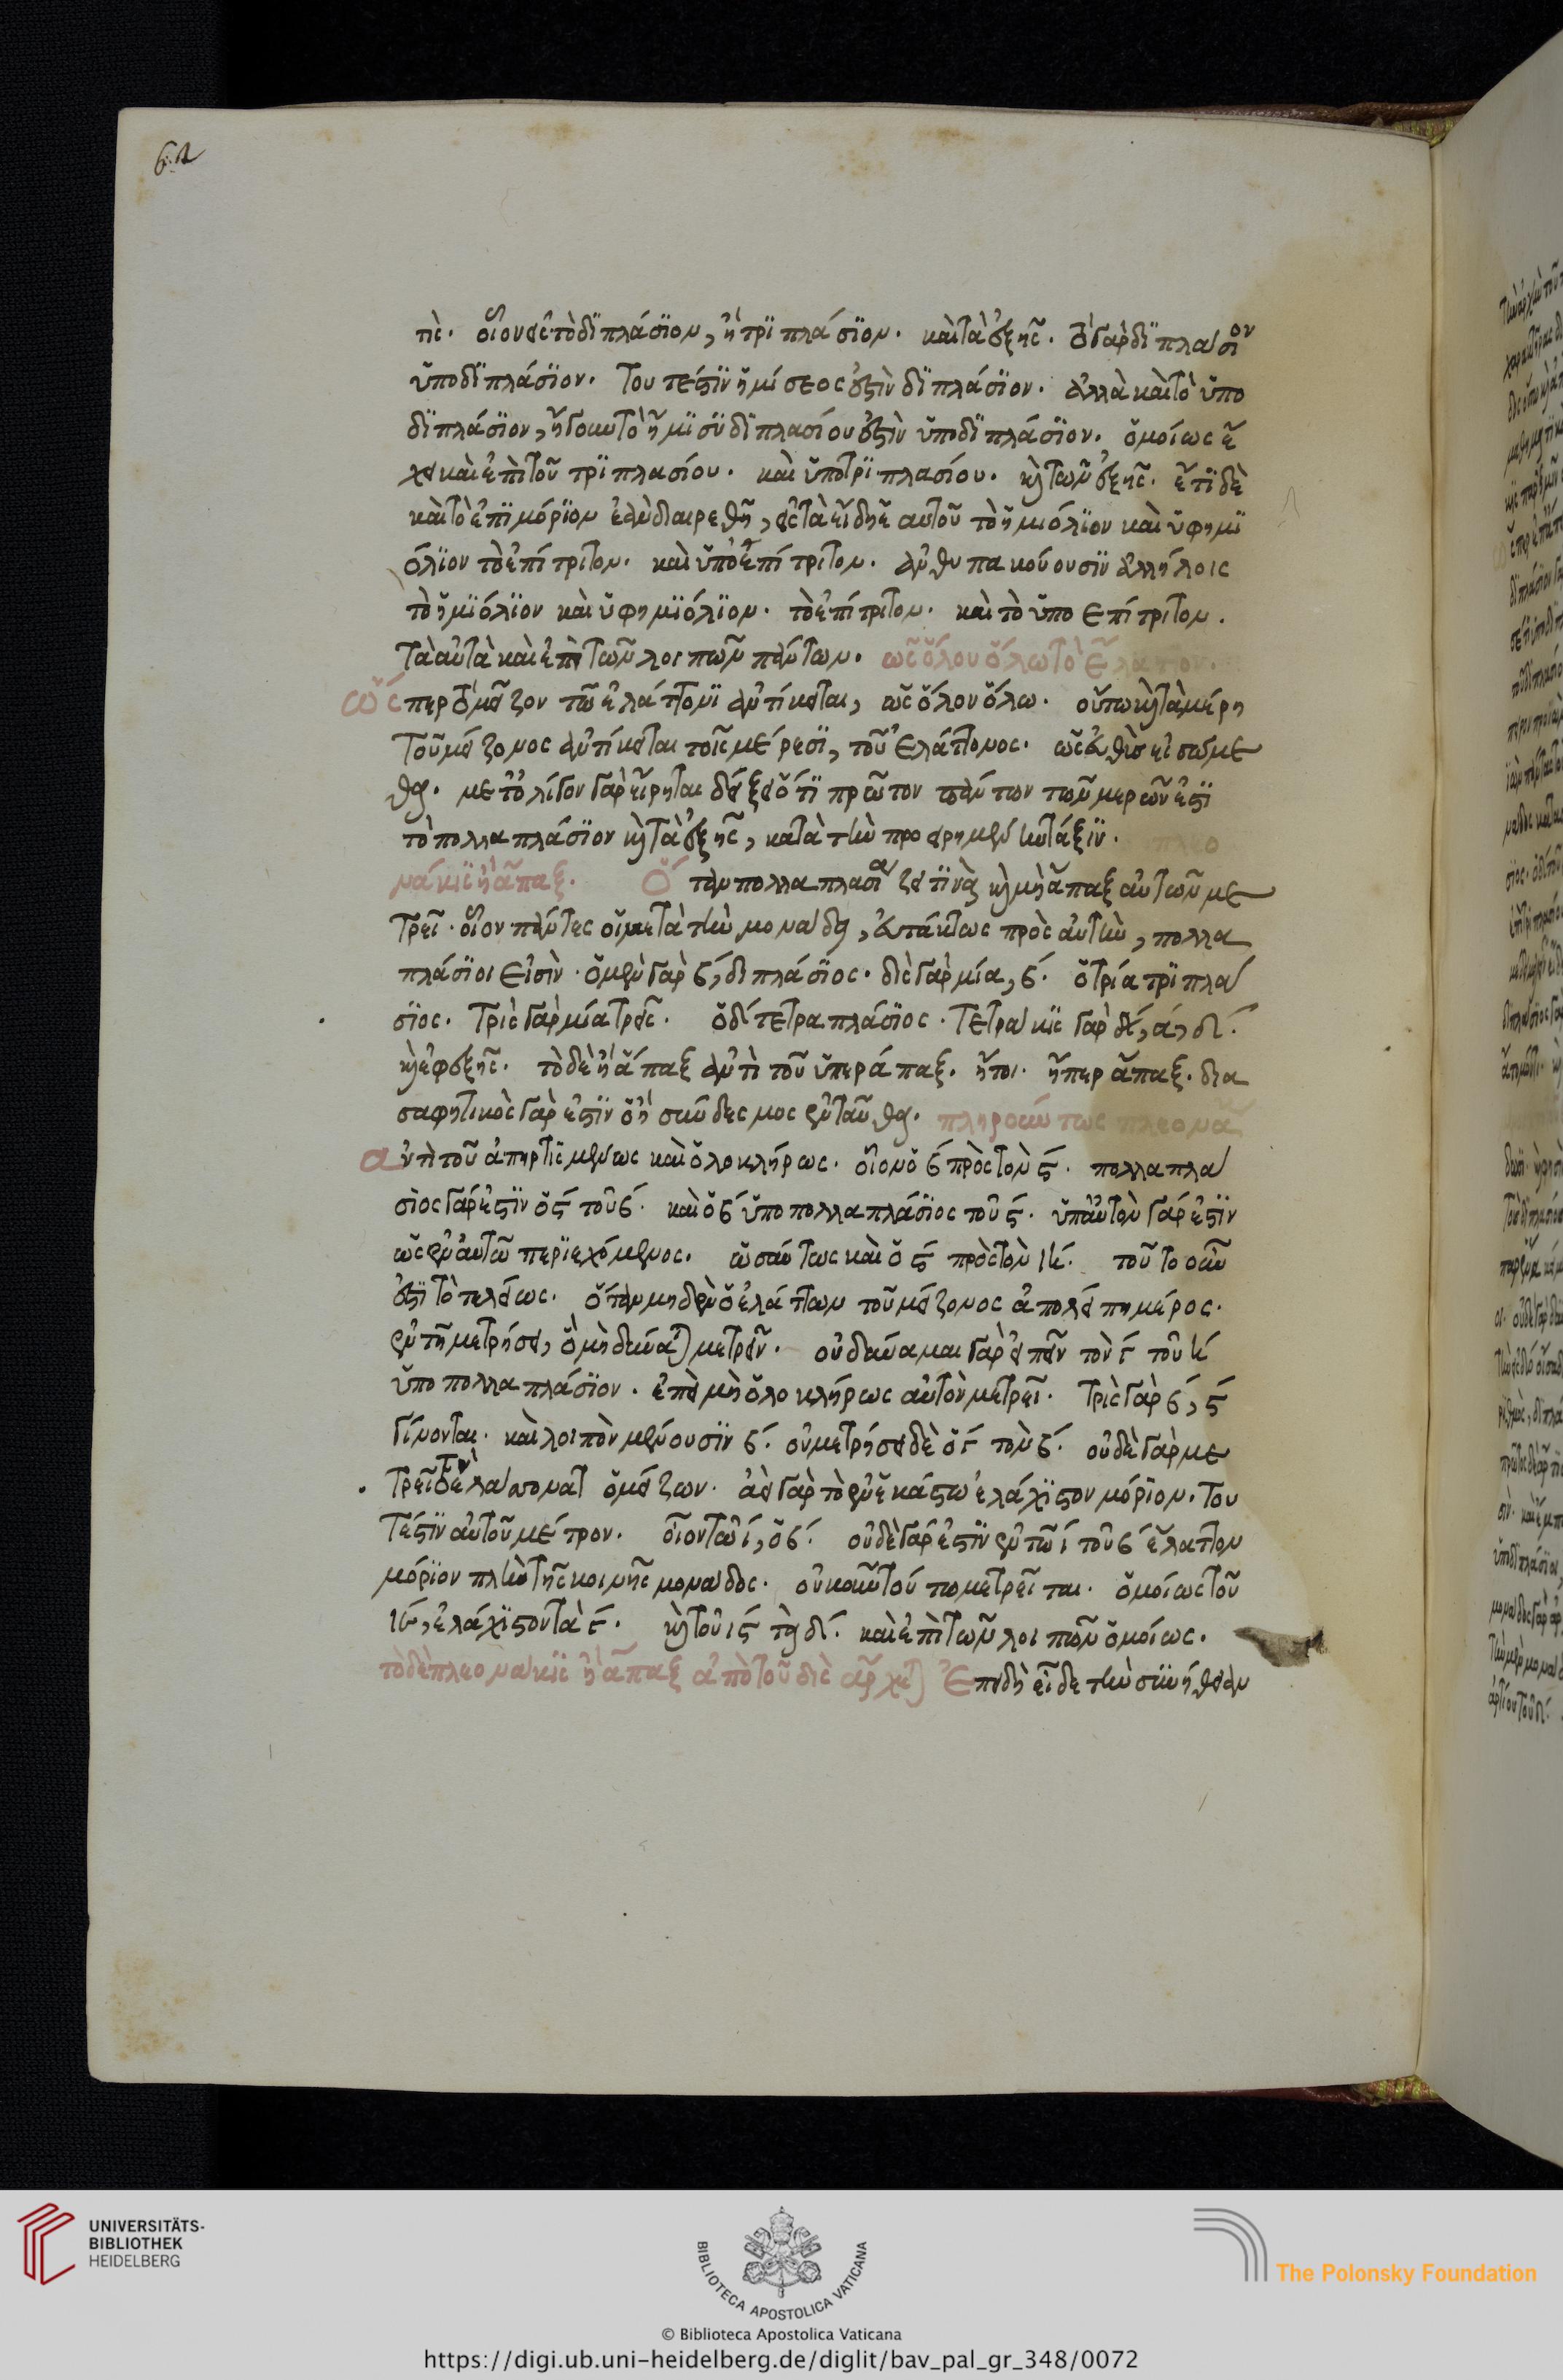 πὲ. οἷον εἰς τὸ διπλάσϊον, ἢ τρϊπλάσϊον. καὶ τὰ ἑξῆς. τὸ γὰρ διπλάσιον
ὑποδϊπλάσϊον. τουτέστϊν ἡμίσεος ἐστὶν διπλάσϊον. ἀλλὰ καὶ τὸ ὑπο
διπλάσϊον, ἤγουν τὸ ἥμϊσϋ διπλασίου ἐστὶν ὑποδϊπλάσϊον. ὁμοίως ἔ
χει καὶ ἐπὶ τοῦ τρϊπλασίου. καὶ ὑποτρϊπλασίου. καὶ τῶν ἑξῆς. ἔτϊ δὲ
καὶ τὸ ἐπϊμόρϊον ἐὰν διαιρεθῆ, εἰς τὰ εἴδη αὐτοῦ τὸ ἡμιόλϊον καὶ ὑφημϊ
όλϊον τὸ ἐπίτριτον. καὶ ὑποεπίτριτον. ἀνθυπακούουσϊν ἀλλήλοις
τὸ ἡμϊόλϊον καὶ ὑφημϊόλϊον. τὸ ἐπίτριτον. καὶ τὸ ὑποεπίτριτον.
Τὰ αὐτὰ καὶ ἐπὶ τῶν λοιπῶν πάντων. ὡς ὅλον ὅλω τὸ ἔλαττον.
ὥσπερ τὸ μεῖζον τῶ ἐλάττονϊ ἀντίκειται, ὡς ὅλον ὅλω. οὕτω καὶ τὰ μέρη
τοῦ μείζονος ἀντίκειται τοῖς μέρεσϊ, τοῦ ἐλάττονος. ὡς αὖθις εἰσόμε
θα. μετ' ὀλίγον γὰρ εἴρηται δεῖξαι ὅτϊ πρῶτον πάντων τῶν μερῶν ἐστϊ
τὸ πολλαπλάσϊον καὶ τὰ ἑξῆς, κατὰ τὴν προειρημένην τάξϊν. πλεο
νάκϊς ἢ ἅπαξ. Ὅταν πολλαπλασιάζει τϊνὰ καὶ μὴ ἅπαξ αὐτῶν με
τρεῖ. οἷον πάντες οἱ μετὰ τὴν μονάδα, εὐτάκτως πρὸς αὐτὴν, πολλα
πλάσϊοι εἰσὶν. ὁ μὲν γὰρ β, διπλάσϊος. δὶς γὰρ μία, β. ὁ τρία τρϊπλά
σϊος. τρὶς γὰρ μία τρεῖς. ὁ δ τετραπλάσϊος. τετράκϊς γὰρ α, δ.
καὶ ἐφεξῆς. τὸ δὲ ἢ ἅπαξ ἀντὶ τοῦ ὑπεράπαξ. ἤτοι. ἤπερ ἅπαξ. δια
σαφητικὸς γὰρ ἐστϊν ὁ ἢ σύνδεσμος ἐνταῦθα. πληρούντως πλεονα
ἀντὶ τοῦ ἀπηρτϊσμένως καὶ ὁλοκλήρως. οἷον ὁ β πρὸς τὸν ϛ. πολλαπλά
σϊος γάρ ἐστϊν ὁ ϛ τοῦ β. καὶ ὁ β ὑποπολλαπλάσϊος τοῦ ϛ. ὑπ' αὐτὸν γάρ ἐστϊν
ὡς ἐν αὐτῶ περϊεχόμενος. ὡσαύτως καὶ ὁ ϛ πρὸς τὸν ιβ. τοῦτο οὖν
ἐστϊ τὸ τελείως. ὅταν μηδὲν ὁ ἐλάττων τοῦ μείζονος ἀπολείπη μέρος.
ἐν τῆ μετρήσει, ὃ μὴ δύναται μετρεῖν. οὐ δύναμαι γὰρ εἰπεῖν τὸν
ὑποπολλαπλάσϊον. ἐπεὶ μὴ ὁλοκλήρως αὐτὸν μετρεῖ. τρὶς γὰρ β, ϛ
γίνονται. καὶ λοιπὸν μένουσϊν β. οὐ μετρήσει δὲ ὁ τὸν β. οὐδὲ γὰρ με
τρεῖ τὸν ἐλάττονα ὁ μείζων. ἀεὶ γὰρ τὸ ἐν ἑκάστω ἐλάχϊστον μόρϊον. του
τέστϊν αὐτοῦ μέτρον. οἷον τῶ ι, ὁ β. οὐδὲ γάρ ἐστϊν ἐν τῶ ι τοῦ β ἔλαττον
μόρϊον πλὴν τῆς κοινῆς μονάδος. οὐκοῦν τούτω μετρεῖται. ὁμοίως τοῦ
ἐλάχϊστον τὰ . καὶ τοῦ ιϛ τὰ δ. καὶ ἐπὶ τῶν λοιπῶν ὁμοίως.
τὸ δὲ πλεονάκϊς ἢ ἅπαξ ἀπὸ τοῦ δὶς ἄρχεται Ἐπειδὴ εἶδε τὴν συνήθειαν
UNIVERSITÄTS-
BIBLIOTHEK
HEIDELBERG
BIBLIOTECA APOSTOLICA VATICANA
© Biblioteca Apostolica Vaticana
The Polonsky Foundation
https://digi.ub.uni-heidelberg.de/diglit/bav_pal_gr_348/0072